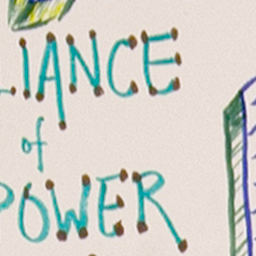 LIANCE
of
POWER